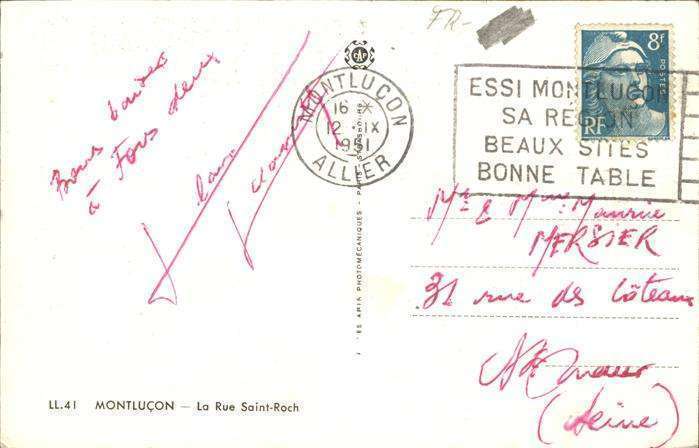 FR-
8f
POSTES
RF
MONTLUÇON
16 *
12 - IX
1951
ALLIER
ESSI MONTLUÇON
SA REGION
BEAUX SITES
BONNE TABLE
Bons baisers
à Tous deux
Mr & Mme Maurice
MERSIER
31 rue des Côteaux
(Seine)
LL.41 MONTLUÇON — La Rue Saint-Roch